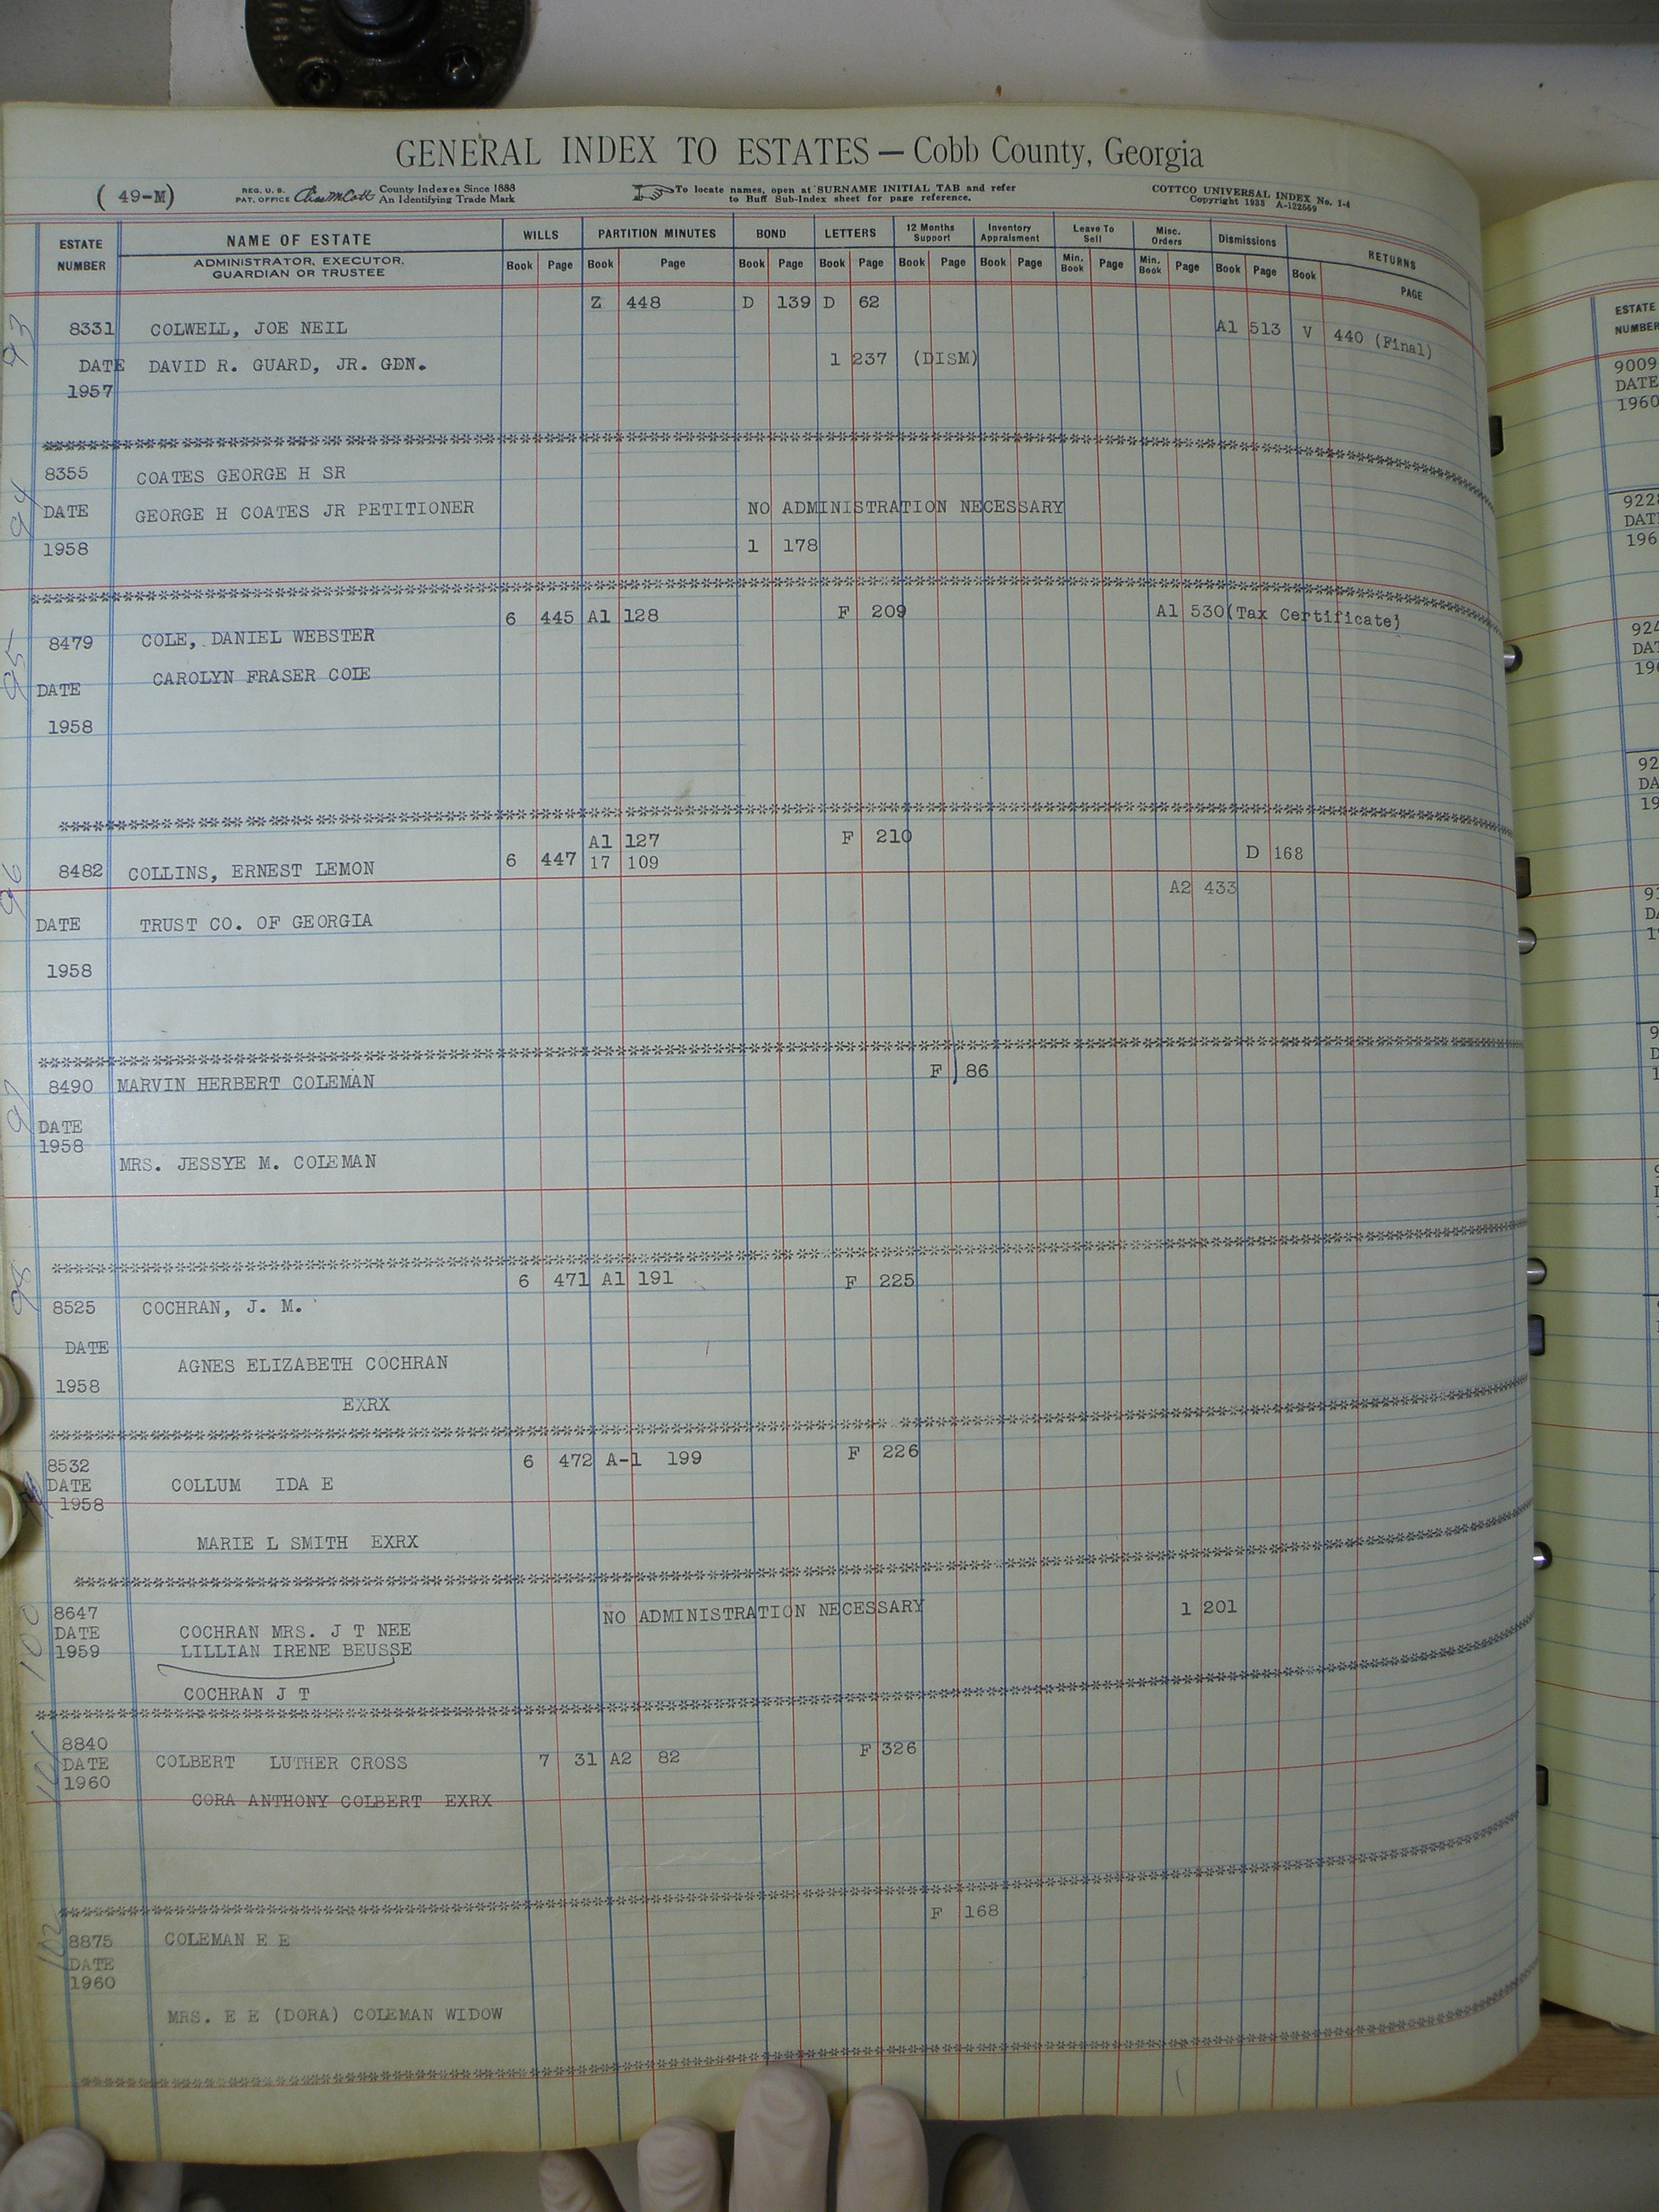 GENERAL INDEX TO ESTATES — Cobb County, Georgia
( 49-M)
REG. U. S. PAT. OFFICE
County Indexes Since 1888
An Identifying Trade Mark
To locate names, open at SURNAME INITIAL TAB and refer
to Buff Sub-Index sheet for page reference.
COTTCO UNIVERSAL INDEX No. 1-4
Copyright 1935 A-122559
ESTATE NUMBER
NAME OF ESTATE
ADMINISTRATOR, EXECUTOR, GUARDIAN OR TRUSTEE
WILLS PARTITION MINUTES BOND LETTERS 12 Months Support Inventory Appraisment Leave To Sell Misc. Orders Dismissions RETURNS
Book Page Book Page Book Page Book Page Book Page Book Page Min. Book Page Min. Book Page Book Page Book PAGE
93
Z 448 D 139 D 62
8331 COLWELL, JOE NEIL A1 513 V 440 (Final)
DATE DAVID R. GUARD, JR. GDN. 1 237 (DISM)
1957
94
8355 COATES GEORGE H SR
DATE GEORGE H COATES JR PETITIONER NO ADMINISTRATION NECESSARY
1958 1 178
95
6 445 A1 128 F 209 A1 530(Tax Certificate)
8479 COLE, DANIEL WEBSTER
DATE CAROLYN FRASER COLE
1958
96
A1 127 F 210
8482 COLLINS, ERNEST LEMON 6 447 17 109 D 168
A2 433
DATE TRUST CO. OF GEORGIA
1958
97
8490 MARVIN HERBERT COLEMAN F 86
DATE
1958
MRS. JESSYE M. COLEMAN
98
6 471 A1 191 F 225
8525 COCHRAN, J. M.
DATE
AGNES ELIZABETH COCHRAN
1958
EXRX
8532 6 472 A-1 199 F 226
DATE COLLUM IDA E
1958
MARIE L SMITH EXRX
100
8647 NO ADMINISTRATION NECESSARY 1 201
DATE COCHRAN MRS. J T NEE
1959 LILLIAN IRENE BEUSSE
COCHRAN J T
101
8840
DATE COLBERT LUTHER CROSS 7 31 A2 82 F 326
1960
CORA ANTHONY COLBERT EXRX
102
F 168
8875 COLEMAN E E
DATE
1960
MRS. E E (DORA) COLEMAN WIDOW
ESTATE
NUMBER
9009
DATE
1960